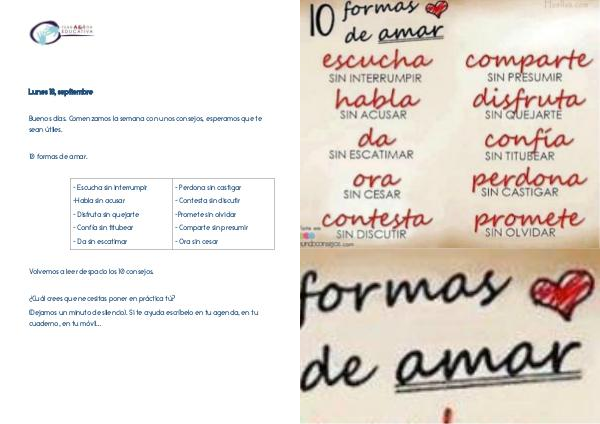 EDUCATIVA
Lunes 18, septiembre
Buenos días. Comenzamos la semana con unos consejos, esperamos que te
sean útiles.
10 formas de amar.
- Escucha sin interrumpir
-Habla sin acusar
- Disfruta sin quejarte
- Confía sin titubear
- Da sin escatimar
- Perdona sin castigar
- Contesta sin discutir
-Promete sin olvidar
- Comparte sin presumir
- Ora sin cesar
Volvemos a leer despacio los 10 consejos.
¿Cuál crees que necesitas poner en práctica tú?
(Dejamos un minuto de silencio). Si te ayuda escríbelo en tu agenda, en tu
cuaderno, en tu móvil...
10 formas
de amar
escucha
SIN INTERRUMPIR
habla
SIN ACUSAR
da
SIN ESCATIMAR
ora
SIN CESAR
contesta
SIN DISCUTIR
comparte
SIN PRESUMIR
disfruta
SIN QUEJARTE
confía
SIN TITUBEAR
perdona
SIN CASTIGAR
promete
SIN OLVIDAR
undoconsejos.com
formas
de amar